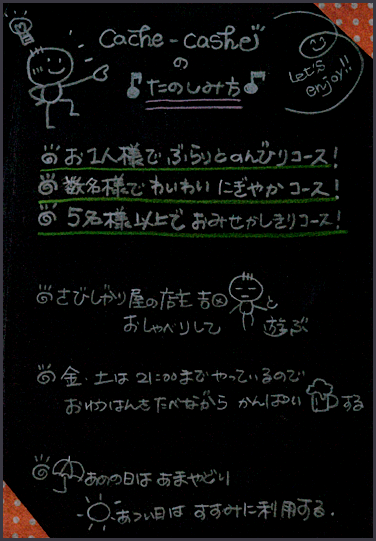 Cache-cashej
の
♪たのしみ方♪
Let's
enjoy!!
お1人様で ぶらりとのんびりコース!
数名様で わいわい にぎやかコース!
5名様以上で おみせかしきりコース!
さびしがり屋の店主 吉 と
おしゃべりして 遊ぶ
金・土は 21:00まで やっているので
おゆうはんをたべながら かんぱい する
あめの日は あまやどり
あつい日は すずみに利用する.